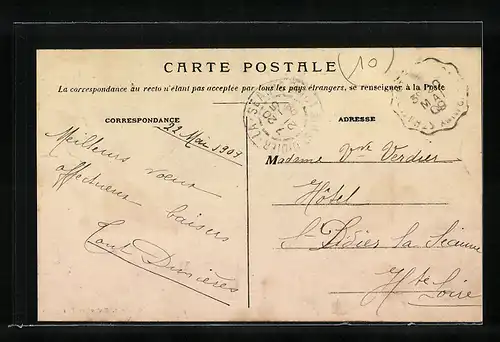 (10)
CARTE POSTALE
La correspondance au recto n'étant pas acceptée par tous les pays étrangers, se renseigner à la Poste
CORRESPONDANCE
ADRESSE
22 Mai 1909
Meilleurs vœux
affectueux baisers
Madame Vve Verdier
Hôtel
St Didier la Séauve
Hte Loire